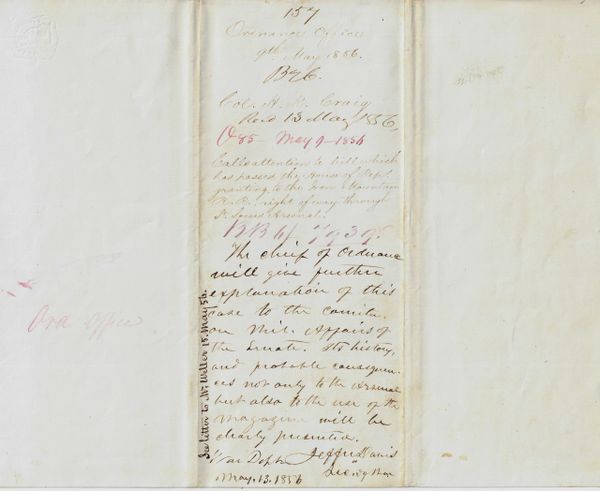 157
Ordnance Office
9th May 1856.
Col. H. K. Craig
Recd 13 May 1856,
O 85 - May 9 - 1856
Calls attention to bill which
has passed the House of Rept.
granting to the Iron Mountain
R. R. right of way through
St Louis Arsenal.
The chief of Ordnance
will give further
explanation of this
case to the comtte.
on Mil. Affairs of
the Senate. Its history,
and probable consequen-
ces not only to the Arsenal
but also to the use of the
magazine will be
clearly presented.
Jeffn Davis
War Dept.
Secy War
May. 13. 1856
See letter to Mr. Weller 15. May 56.
Ord Office